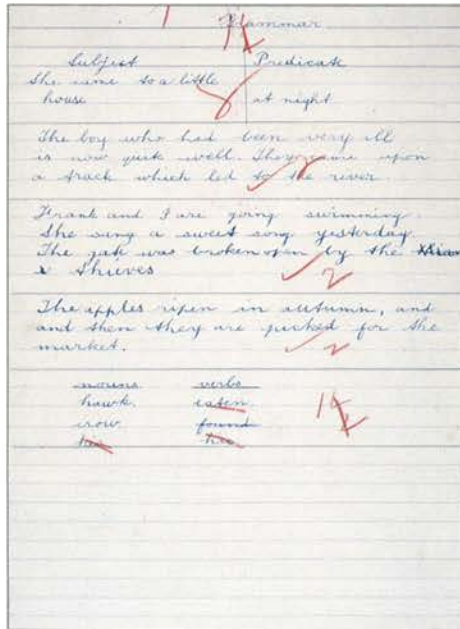 Grammar
Subject Predicate
She came to a little
house at night
The boy who had been very ill
is now quite well. They came upon
a track which led to the river.
Frank and I are going swimming.
She sang a sweet song yesterday.
The gate was broken open by the
thieves
The apples ripen in autumn, and
and then they are picked for the
market.
2
2
nouns verbs
hawk. eaten.
crow. found